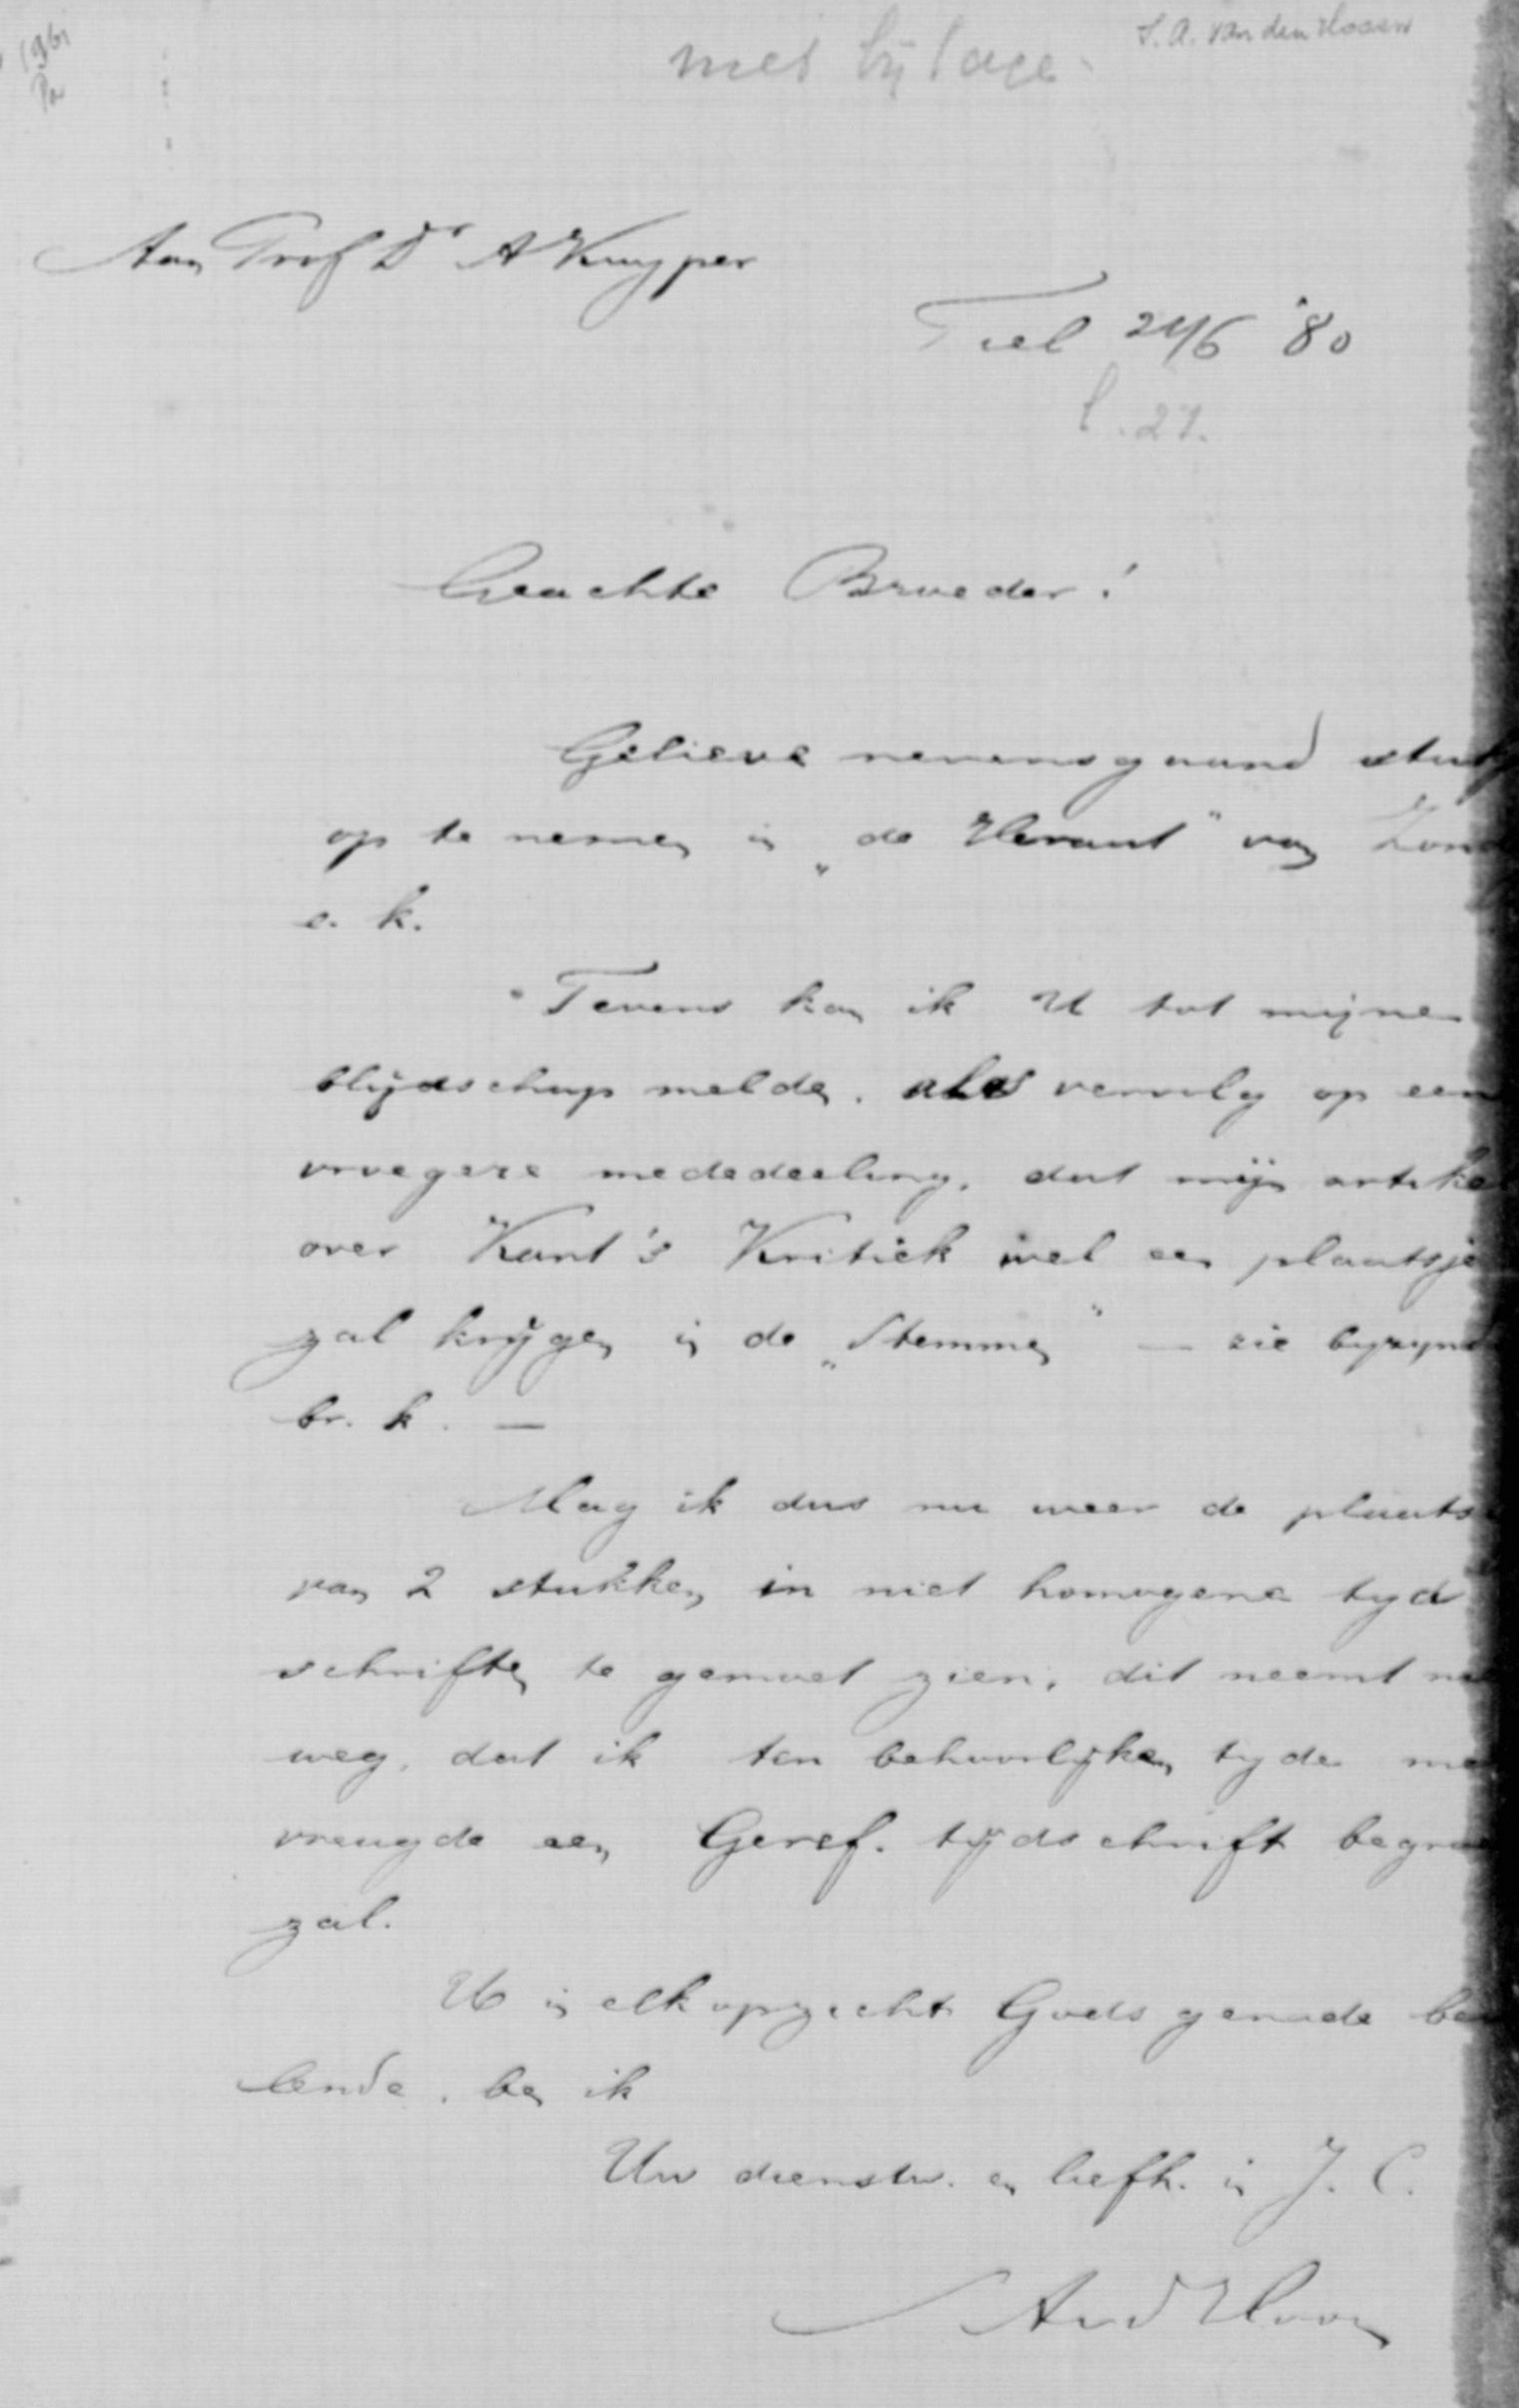 1961
met bijlage.
S. A. van den Hoorn
Aan Prof Dr A Kuyper
Tiel 24/6 '80
Geachte Broeder!
Gelieve nevensgaand stuk
op te nemen in „de Heraut" van
e. k.
Tevens kan ik U tot mijne
blijdschap melden, als vervolg op een
vroegere mededeeling, dat mijn artikel
over Kant's Kritiek wel een plaatsje
zal krijgen in de „Stemmen" — zie bijzijnd
br. k. —
Mag ik dus nu weer de plaats
van 2 stukken in niet homogene tijd
schriften te gemoet zien, dit neemt
weg, dat ik ten behoorlijken tijde
vreugde een Geref. tijdschrift
zal.
U in elk opzicht Gods genade
lende, ben ik
Uw dienstw. en liefh. in J. C.
SA v d Hoorn